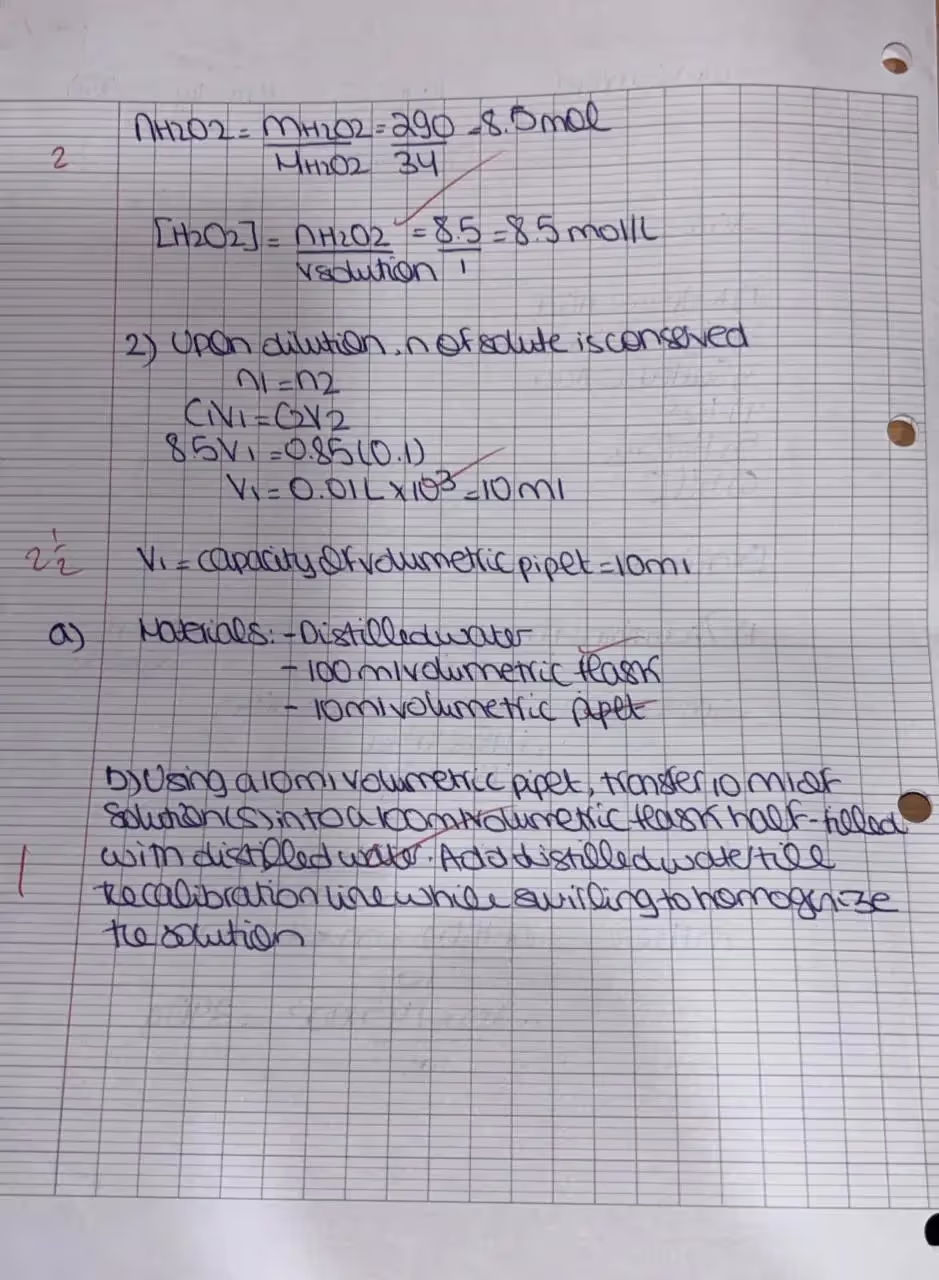 nH2O2 = mH2O2 = 290 = 8.5 mol
2 MH2O2 34
[H2O2] = nH2O2 = 8.5 = 8.5 mol/L
Vsolution 1
2) Upon dilution, n of solute is conserved
n1 = n2
C1V1 = C2V2
8.5V1 = 0.85(0.1)
V1 = 0.01L x 10³ = 10ml
2 1/2 V1 = capacity of volumetric pipet = 10ml
a) Materials: - Distilled water
- 100ml volumetric flask
- 10ml volumetric pipet
b) Using a 10ml volumetric pipet, transfer 10ml of
solution (s) into a 100ml volumetric flask half-filled
1 with distilled water. Add distilled water till
the calibration line while swirling to homognize
the solution